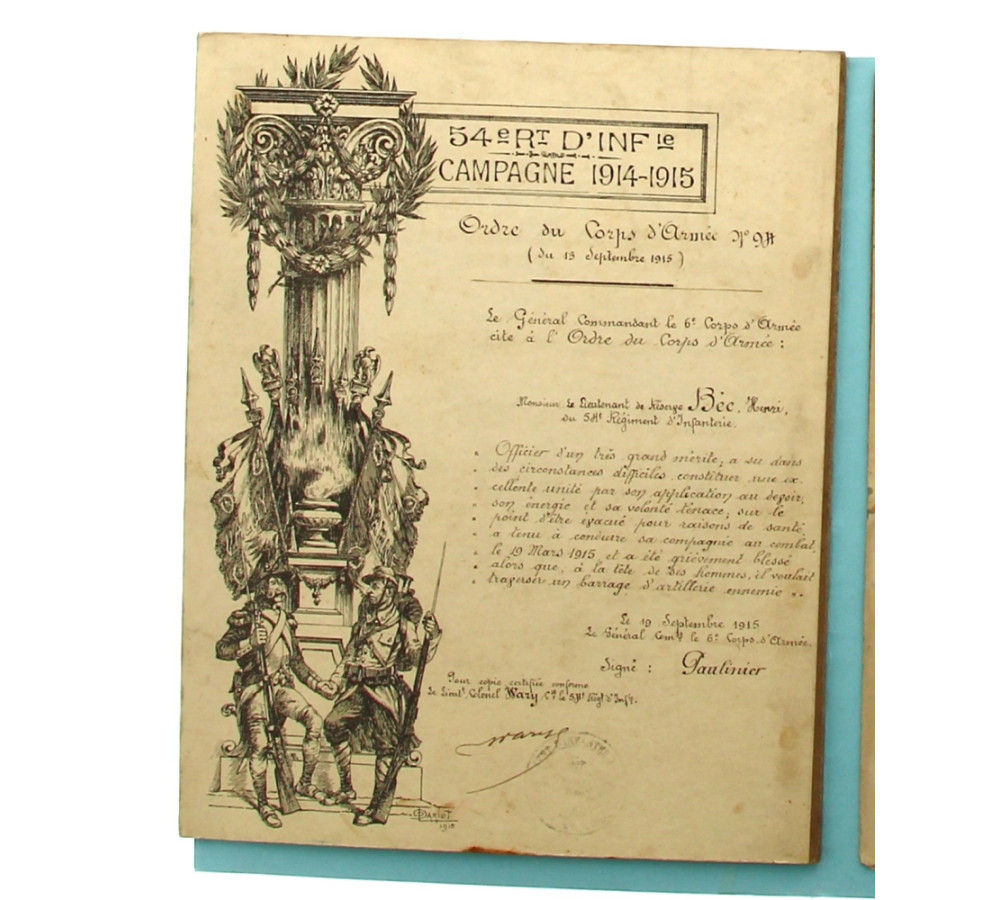 54e RT D'INFie
CAMPAGNE 1914-1915
Ordre du Corps d'Armée N° 94
(du 13 Septembre 1915)
Le Général Commandant le 6e Corps d'Armée
cite à l'Ordre du Corps d'Armée :
Monsieur le Lieutenant de Réserve Bèc, Henri,
du 54e Régiment d'Infanterie.
" Officier d'un très grand mérite ; a su dans
" des circonstances difficiles constituer une ex-
" cellente unité par son application au devoir,
" son énergie et sa volonté tenace ; sur le
" point d'être évacué pour raisons de santé,
" a tenu à conduire sa compagnie au combat
" le 19 Mars 1915 et a été grièvement blessé
" alors que, à la tête de ses hommes, il voulait
" traverser un barrage d'artillerie ennemie ".
Le 19 Septembre 1915
Le Général Comt le 6e Corps d'Armée.
Signé : Paulinier
Pour copie certifiée conforme
Le Lieutt Colonel Wary Ct le 54e Régt d'Infie.
Wary
1915